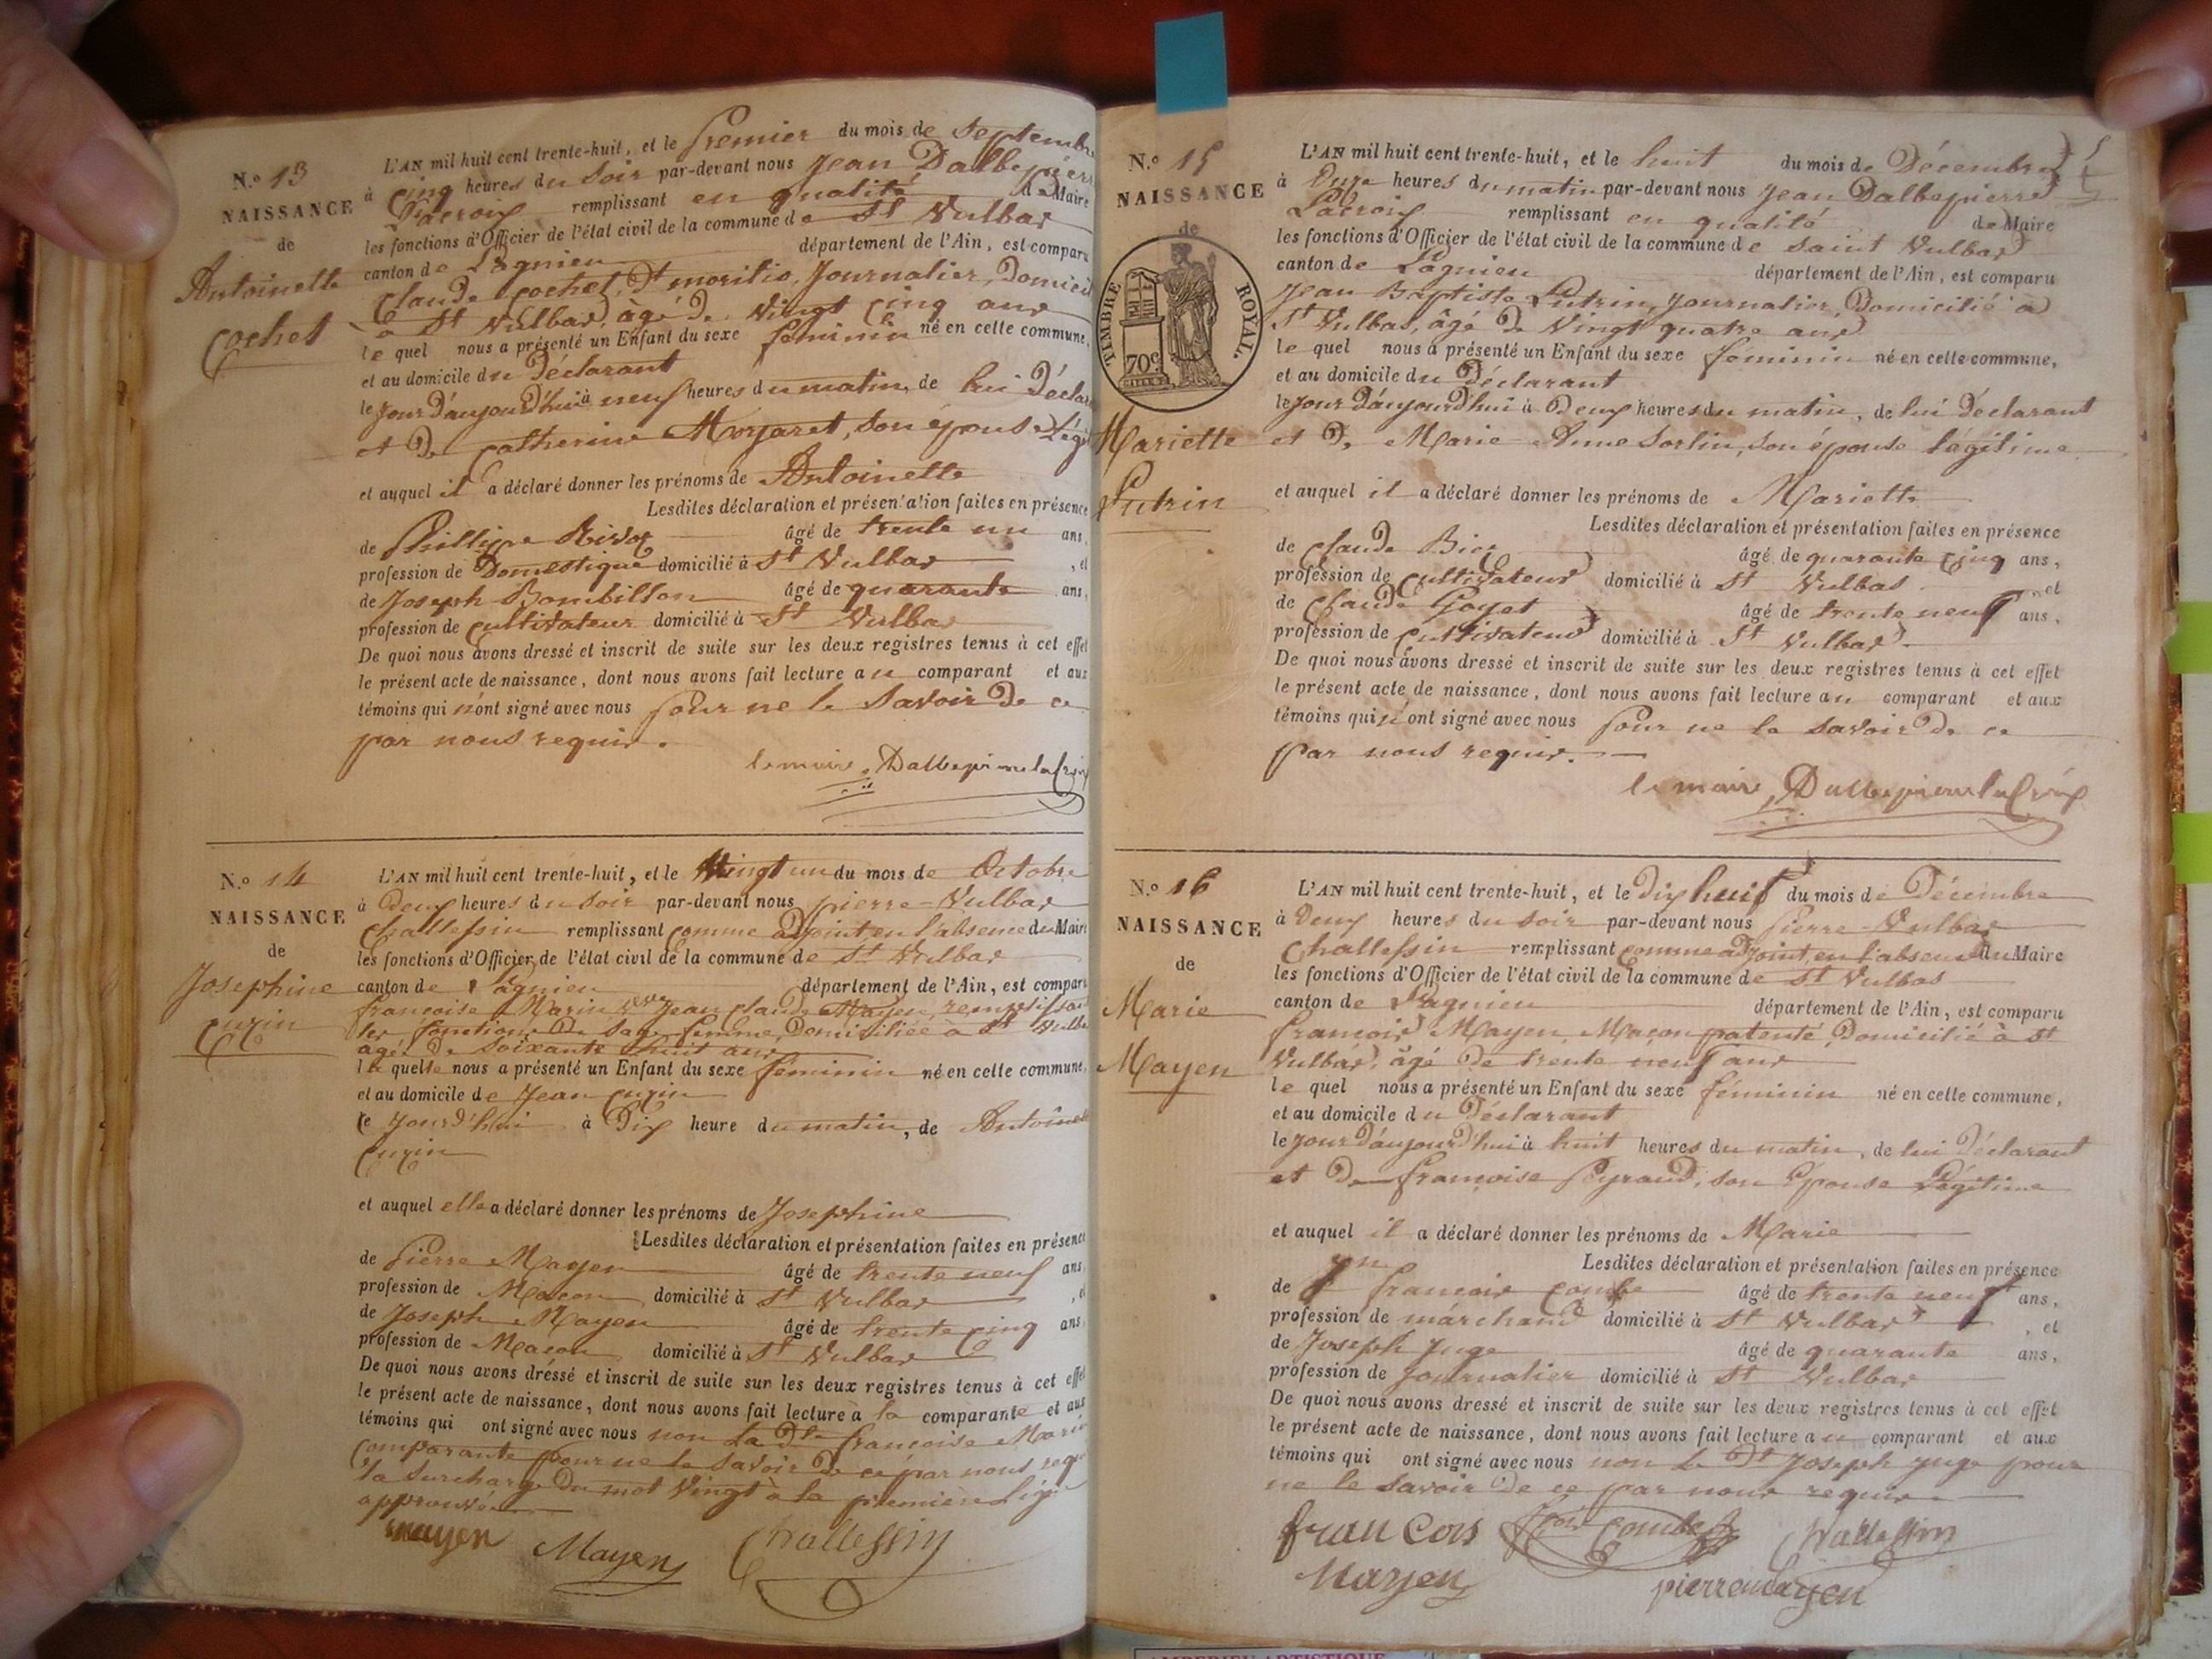 N.º 13
NAISSANCE
de
Antoinette
Cochet
L'AN mil huit cent trente-huit, et le premier du mois de Septembre
à cinq heures du soir par-devant nous Jean Dalbepierre
Lacroix remplissant en qualité de Maire
les fonctions d'Officier de l'état civil de la commune de St Vulbas
canton de Lagnieu département de l'Ain, est comparu
Claude Cochet, dt Journalier, Domicilié
à St Vulbas, âgé de vingt cinq ans
le quel nous a présenté un Enfant du sexe féminin né en cette commune,
et au domicile du Déclarant
le jour d'aujourd'hui à neuf heures du matin, de lui Déclarant
et De Catherine son épouse Légi
et auquel il a déclaré donner les prénoms de Antoinette
Lesdites déclaration et présentation faites en présence
de Phillipe âgé de trente un ans,
profession de Domestique domicilié à St Vulbas , et
de Joseph Bombillon âgé de quarante ans,
profession de cultivateur domicilié à St Vulbas
De quoi nous avons dressé et inscrit de suite sur les deux registres tenus à cet effet
le présent acte de naissance, dont nous avons fait lecture au comparant et aux
témoins qui n'ont signé avec nous pour ne le savoir De ce
par nous requis.
le maire, Dalbepierre lacroix
N.º 14
NAISSANCE
de
Josephine
Cuzin
L'AN mil huit cent trente-huit, et le Vingt un du mois de Octobre
à Deux heures du soir par-devant nous pierre-Vulbas
Challessin remplissant comme adjoint en l'absence du Maire
les fonctions d'Officier de l'état civil de la commune de St Vulbas
canton de Lagnieu département de l'Ain, est comparu
françoise Marin vve Jean Claude Mayen, remplissant
les fonctions De Sage femme, Domiciliée à St Vulbas
agée De Soixante huit ans
la quelle nous a présenté un Enfant du sexe féminin né en cette commune,
et au domicile de Jean Cuzin
le jourd'hui à Dix heure du matin, de Antoinette
Cuzin
et auquel elle a déclaré donner les prénoms de Josephine
Lesdites déclaration et présentation faites en présence
de Pierre Mayen âgé de trente neuf ans
profession de Maçon domicilié à St Vulbas , et
de Joseph Mayen âgé de trente cinq ans
profession de Maçon domicilié à St Vulbas
De quoi nous avons dressé et inscrit de suite sur les deux registres tenus à cet effet
le présent acte de naissance, dont nous avons fait lecture à la comparante et aux
témoins qui ont signé avec nous non La Dte françoise Marin
Comparante pour ne le savoir De ce par nous requis
la Surcharge Du mot Vingt à la première Ligne
approuvée
mayen Mayen Challessin
N.º 15
NAISSANCE
de
TIMBRE ROYAL.
70c.
Mariette
Lutrin
L'AN mil huit cent trente-huit, et le huit du mois de Décembre
à Onze heures du matin par-devant nous Jean Dalbepierre
Lacroix remplissant en qualité de Maire
les fonctions d'Officier de l'état civil de la commune de saint Vulbas
canton de Lagnieu département de l'Ain, est comparu
Jean Baptiste Lutrin, Journalier, Domicilié à
St Vulbas, âgé De Vingt quatre ans
le quel nous a présenté un Enfant du sexe féminin né en cette commune,
et au domicile du Déclarant
le jour d'aujourd'hui à Deux heures du matin, de lui Déclarant
et De Marie Anne Sorlin, son épouse légitime
et auquel il a déclaré donner les prénoms de Mariette
Lesdites déclaration et présentation faites en présence
de Claude Bica âgé de quarante cinq ans,
profession de cultivateur domicilié à St Vulbas , et
de Claude Goyet âgé de trente neuf ans,
profession de cultivateur domicilié à St Vulbas
De quoi nous avons dressé et inscrit de suite sur les deux registres tenus à cet effet
le présent acte de naissance, dont nous avons fait lecture au comparant et aux
témoins qui n'ont signé avec nous pour ne le savoir De ce
par nous requis.
le maire, Dalbepierre lacroix
N.º 16
NAISSANCE
de
Marie
Mayen
L'AN mil huit cent trente-huit, et le dix huit du mois de Décembre
à deux heures du soir par-devant nous Pierre-Vulbas
Challessin remplissant comme adjoint, en l'absence du Maire
les fonctions d'Officier de l'état civil de la commune de St Vulbas
canton de Lagnieu département de l'Ain, est comparu
françois Mayen, Maçon patenté, Domicilié à St
Vulbas, âgé De trente neuf ans
le quel nous a présenté un Enfant du sexe féminin né en cette commune,
et au domicile du Déclarant
le jour D'aujourd'hui à huit heures du matin, de lui Déclarant
et De françoise Peyraud, son Epouse Légitime
et auquel il a déclaré donner les prénoms de Marie
Lesdites déclaration et présentation faites en présence
de françois Combe âgé de trente neuf ans,
profession de marchand domicilié à St Vulbas , et
de Joseph Juge âgé de quarante ans,
profession de Journalier domicilié à St Vulbas
De quoi nous avons dressé et inscrit de suite sur les deux registres tenus à cet effet
le présent acte de naissance, dont nous avons fait lecture au comparant et aux
témoins qui ont signé avec nous non Le Dt Joseph Juge pour
ne le savoir De ce par nous requis.
francois fçois Combe Challessin
Mayen pierre mayen